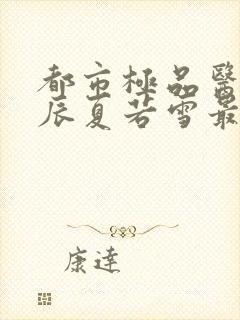 都市極品醫
辰夏若雪最
康達